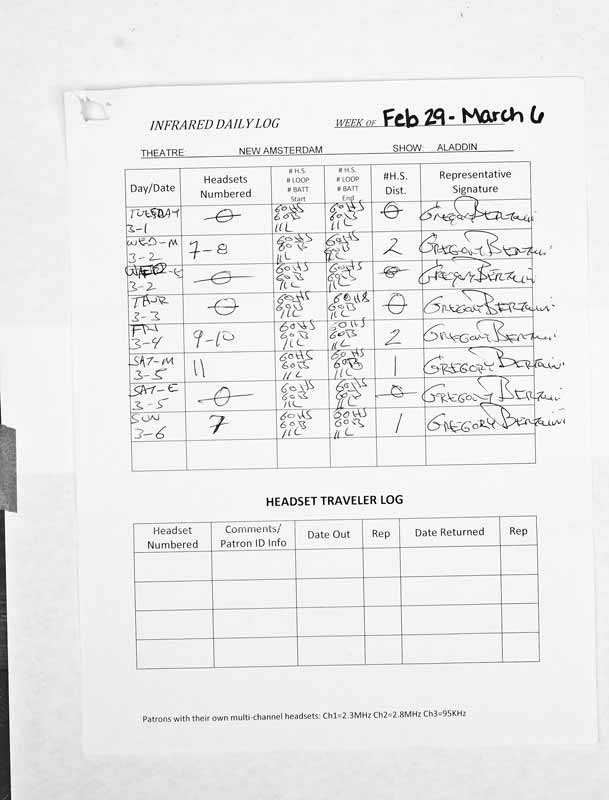 INFRARED DAILY LOG WEEK OF Feb 29 - March 6
THEATRE: NEW AMSTERDAM SHOW: ALADDIN
Day/Date Headsets Numbered # H.S. # LOOP # BATT Start # H.S. # LOOP # BATT End #H.S. Dist. Representative Signature
TUESDAY 3-1 0 60HS 60B 11L 60HS 60B 11L 0 GREGORY BERTZLINI
WED-M 3-2 7-8 60HS 60B 11L 60HS 60B 11L 2 GREGORY
WED-E 3-2 0 60HS 60B 11L 60HS 60B 11L 0 GREGORY
THUR 3-3 0 60HS 60B 11L 60HS 60B 11L 0 GREGORY
FRI 3-4 9-10 60HS 60B 11L 60HS 60B 11L 2 GREGORY
SAT-M 3-5 11 60HS 60B 11L 60HS 60B 11L 1 GREGORY
SAT-E 3-5 0 60HS 60B 11L 60HS 60B 11L 0 GREGORY
SUN 3-6 7 60HS 60B 11L 60HS 60B 11L 1 GREGORY
HEADSET TRAVELER LOG
Headset Numbered Comments/ Patron ID Info Date Out Rep Date Returned Rep
Patrons with their own multi-channel headsets: Ch1=2.3MHz Ch2=2.8MHz Ch3=95KHz